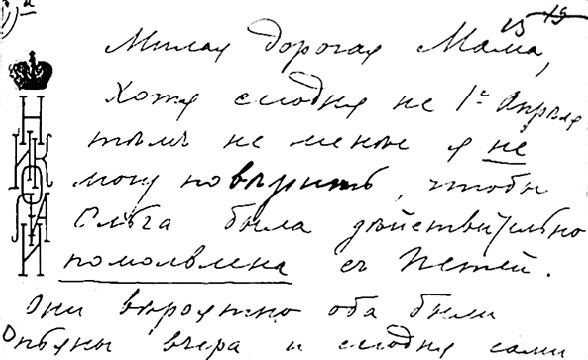 13 15
НИКОЛАЙ
Милая дорогая Мама,
Хотя сегодня не 1ᵉ Апреля
тѣмъ не менѣе я не
могу повѣрить, чтобы
Ольга была дѣйствительно
помолвлена съ Петей.
Они вѣроятно оба были
пьяны вчера и сегодня сами